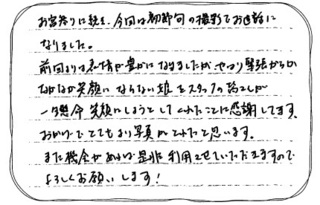 お宮参りに続き、今回は初節句の撮影でお世話に
なりました。
前回よりは表情が豊かになりましたが、やはり緊張からか
なかなか笑顔にならない娘をスタッフの皆さんが
一生懸命笑顔にしようとしてくれたことに感謝してます。
おかげでとてもよい写真がとれたと思います。
また機会があれば是非利用させていただきますので
よろしくお願いします！